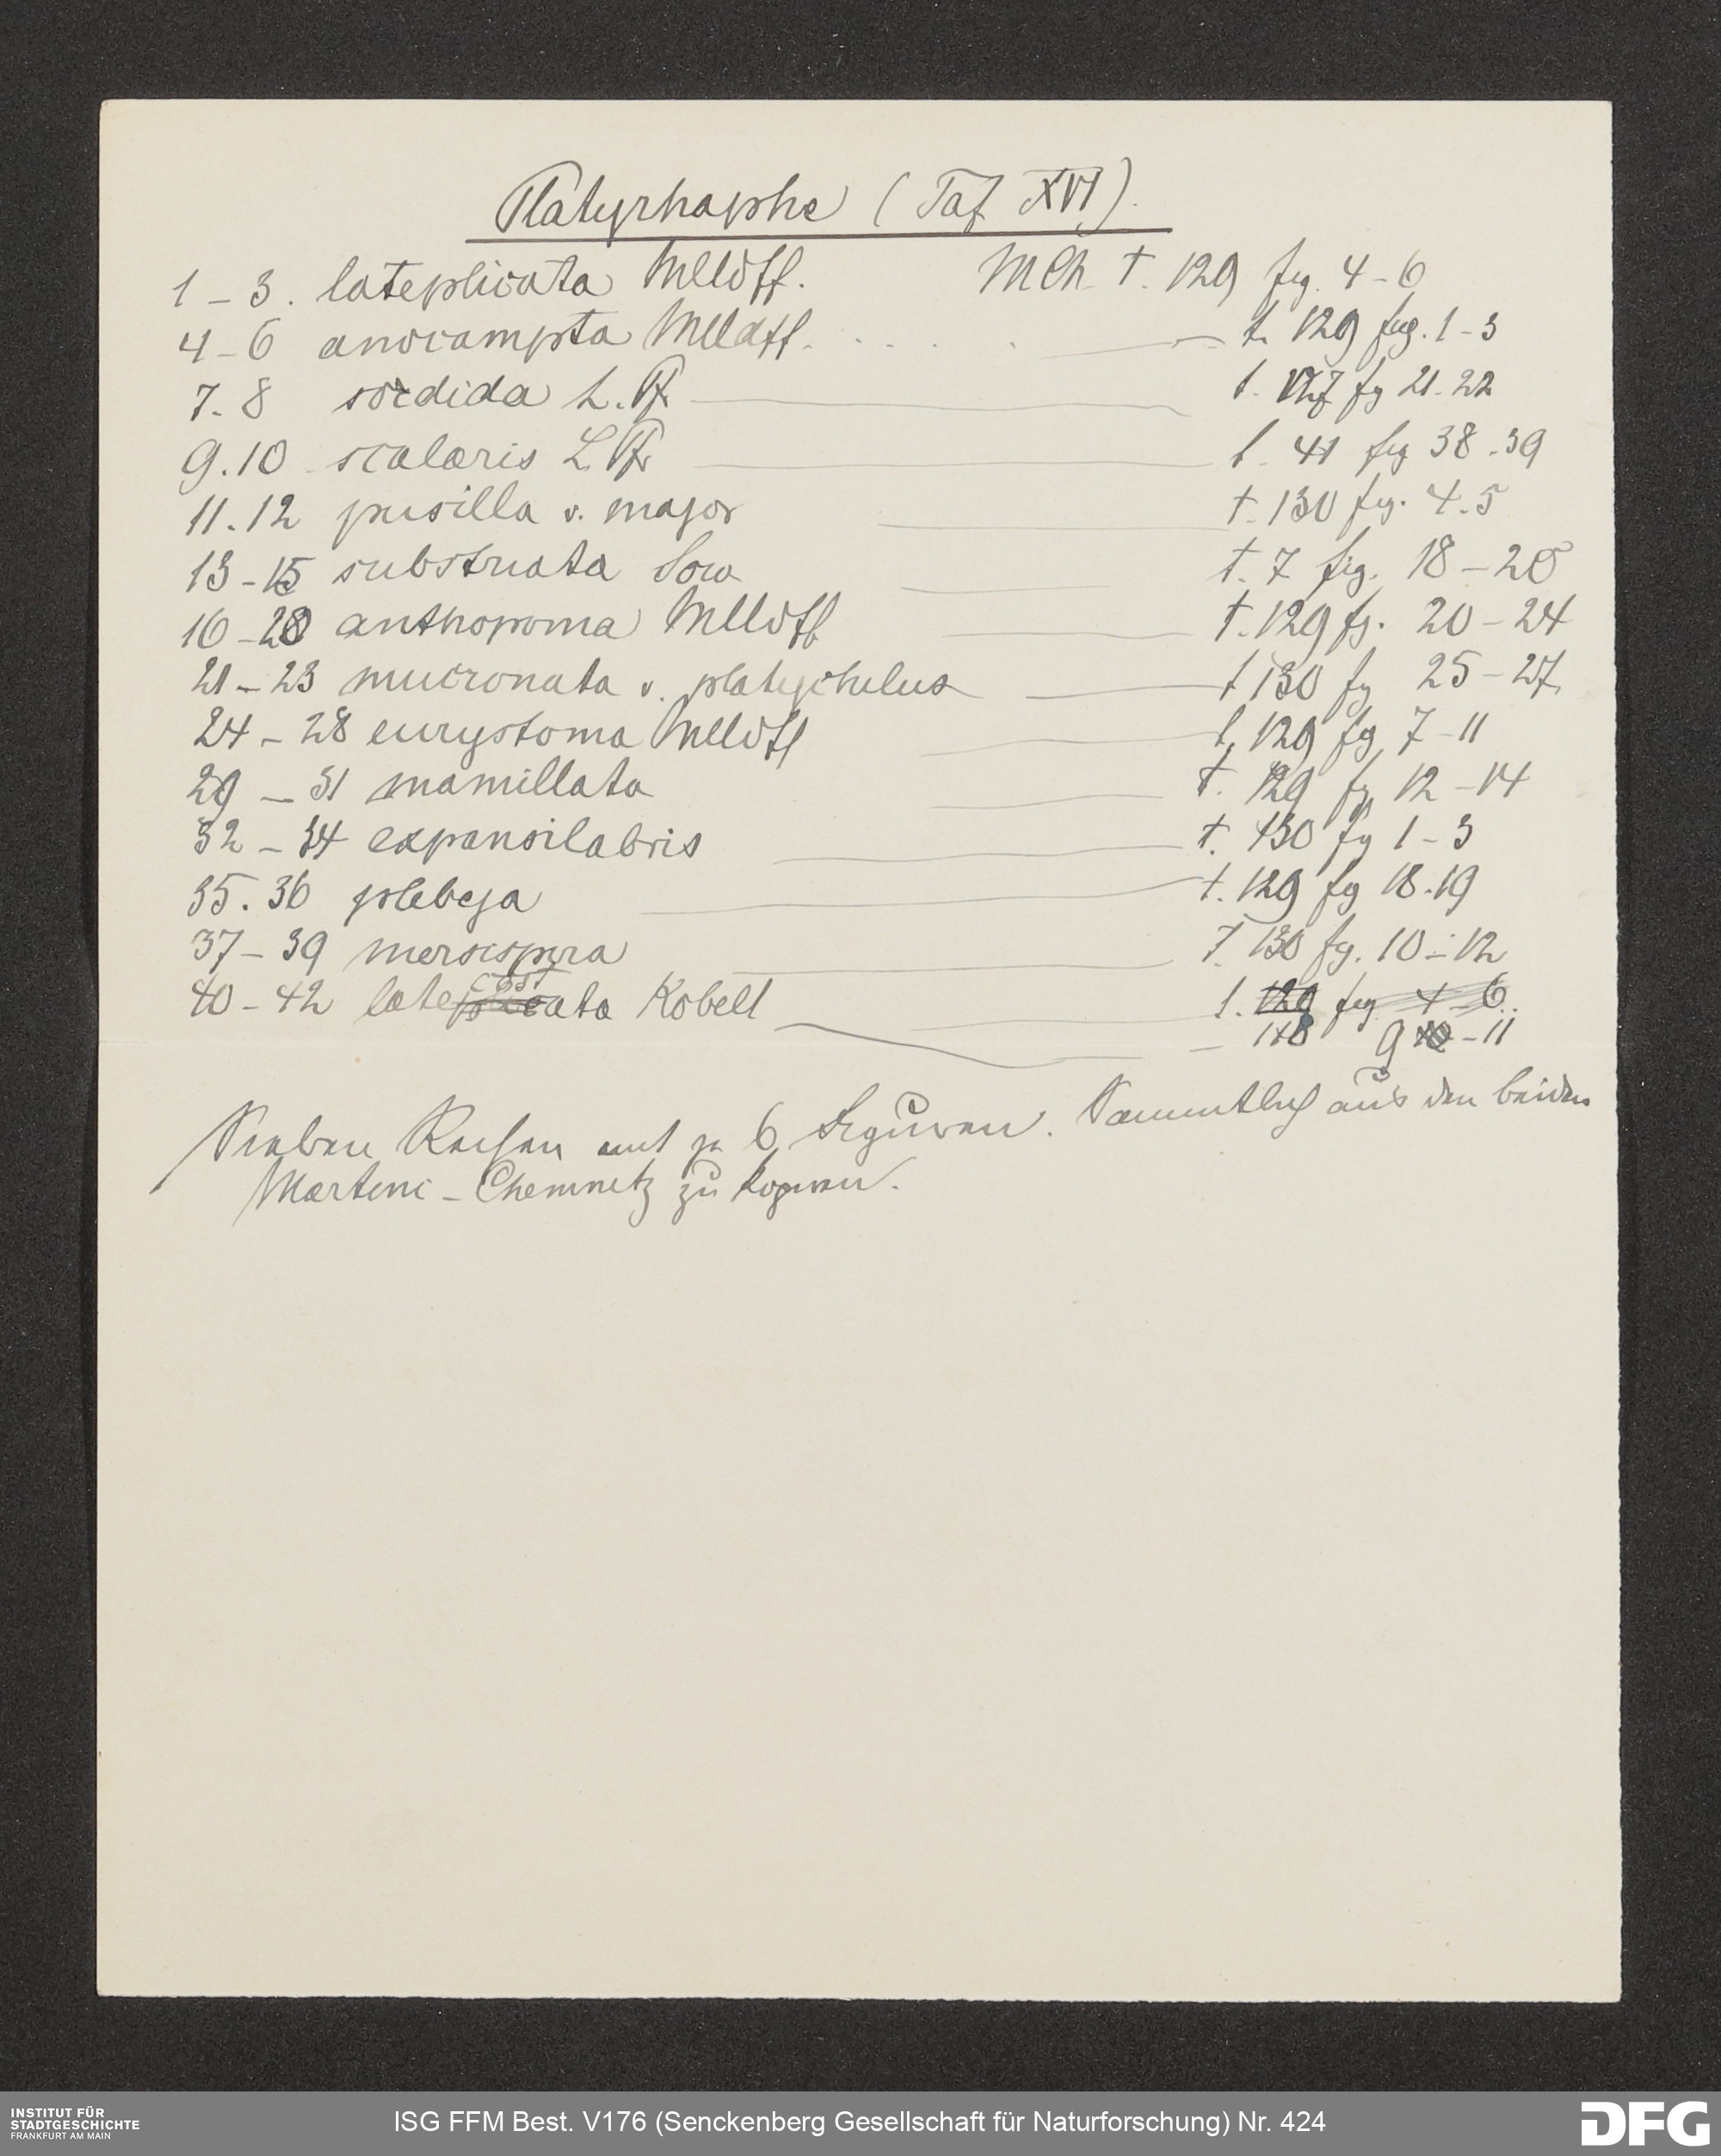 Platyrhaphe (Taf XVI).
1-3. lateplicata Mlldff. MCh. T. 129 fig. 4-6
4-6 anocampta Mlldff. . . . . . — t. 129 fig. 1-3
7.8 sordida L. Pf. — t. 127 fg 21.22
9.10 scalaris L Pfr — t. 41 fig 38-39
11.12 pusilla v. major — t. 130 fig. 4.5
13-15 substriata Sow — t. 7 fig. 18-20
16-20 anthopoma Mlldff — t. 129 fg. 20-24
21-23 mucronata v. platychilus — t 130 fg 25-27
24-28 eurystoma Mlldff — t. 129 fg 7-11
29-31 mamillata — t. 129 fg 12-14
32-34 expansilabris — t. 130 fg 1-3
35.36 plebeja — t. 129 fg 18.19
37-39 — T. 130 fg. 10-12
40-42 latecostata Kobelt — t. 129 fig 4-6
— 148 9 -11
Sieben Reihen mit je 6 Figuren. Sammtlich aus den beiden
Martini-Chemnitz zu kopiren.
INSTITUT FÜR
STADTGESCHICHTE
FRANKFURT AM MAIN
ISG FFM Best. V176 (Senckenberg Gesellschaft für Naturforschung) Nr. 424
DFG